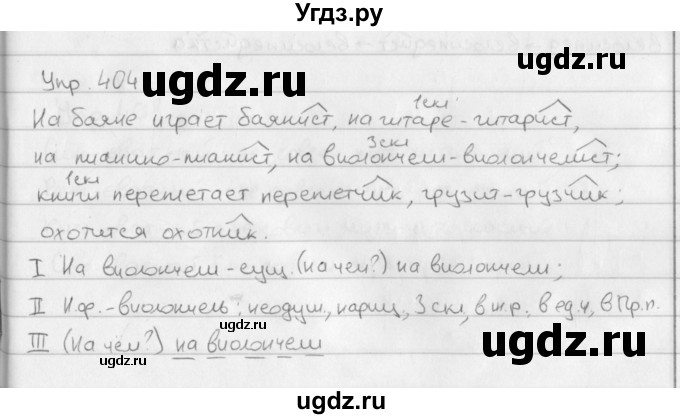 Угдз.ру
Упр. 404
1скл
На баяне играет баянист, на гитаре - гитарист,
3скл
на пианино - пианист, на виолончели - виолончелист;
1скл
книги переплетает переплетчик, грузит - грузчик;
охотится охотник.
I На виолончели - сущ. (на чем?) на виолончели;
II Н.ф. - виолончель; неодуш., нариц., 3 скл, в ж.р., в ед.ч, в Пр.п.
III (На чём?) на виолончели
ugdz.ru
ugdz.ru
ugdz.ru
ugdz.ru
ugdz.ru
ugdz.ru
ugdz.ru
ugdz.ru
ugdz.ru